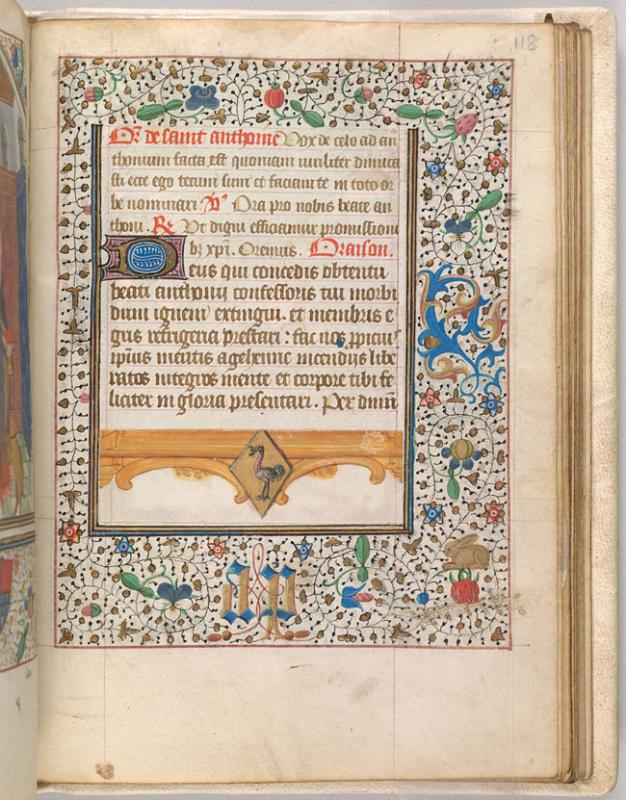 118
Or de saint anthoine Vox de celo ad an
thonium facta est quoniam viriliter dimica
sti ecce ego tecum sum et faciam te in toto or
be nominari V Ora pro nobis beate an
thoni. R Ut digni efficiamur promissioni
bz xpi. Oremus. Oraison.
Deus qui concedis obtentu
beati anthonij confessoris tui morbi
dum ignem extingui. et membris e
gris refrigeria prestari: fac nos
ipius meritis a gehenne incendijs libe
ratos integros mente et corpore tibi fe
liciter in gloria presentari. Per dnm